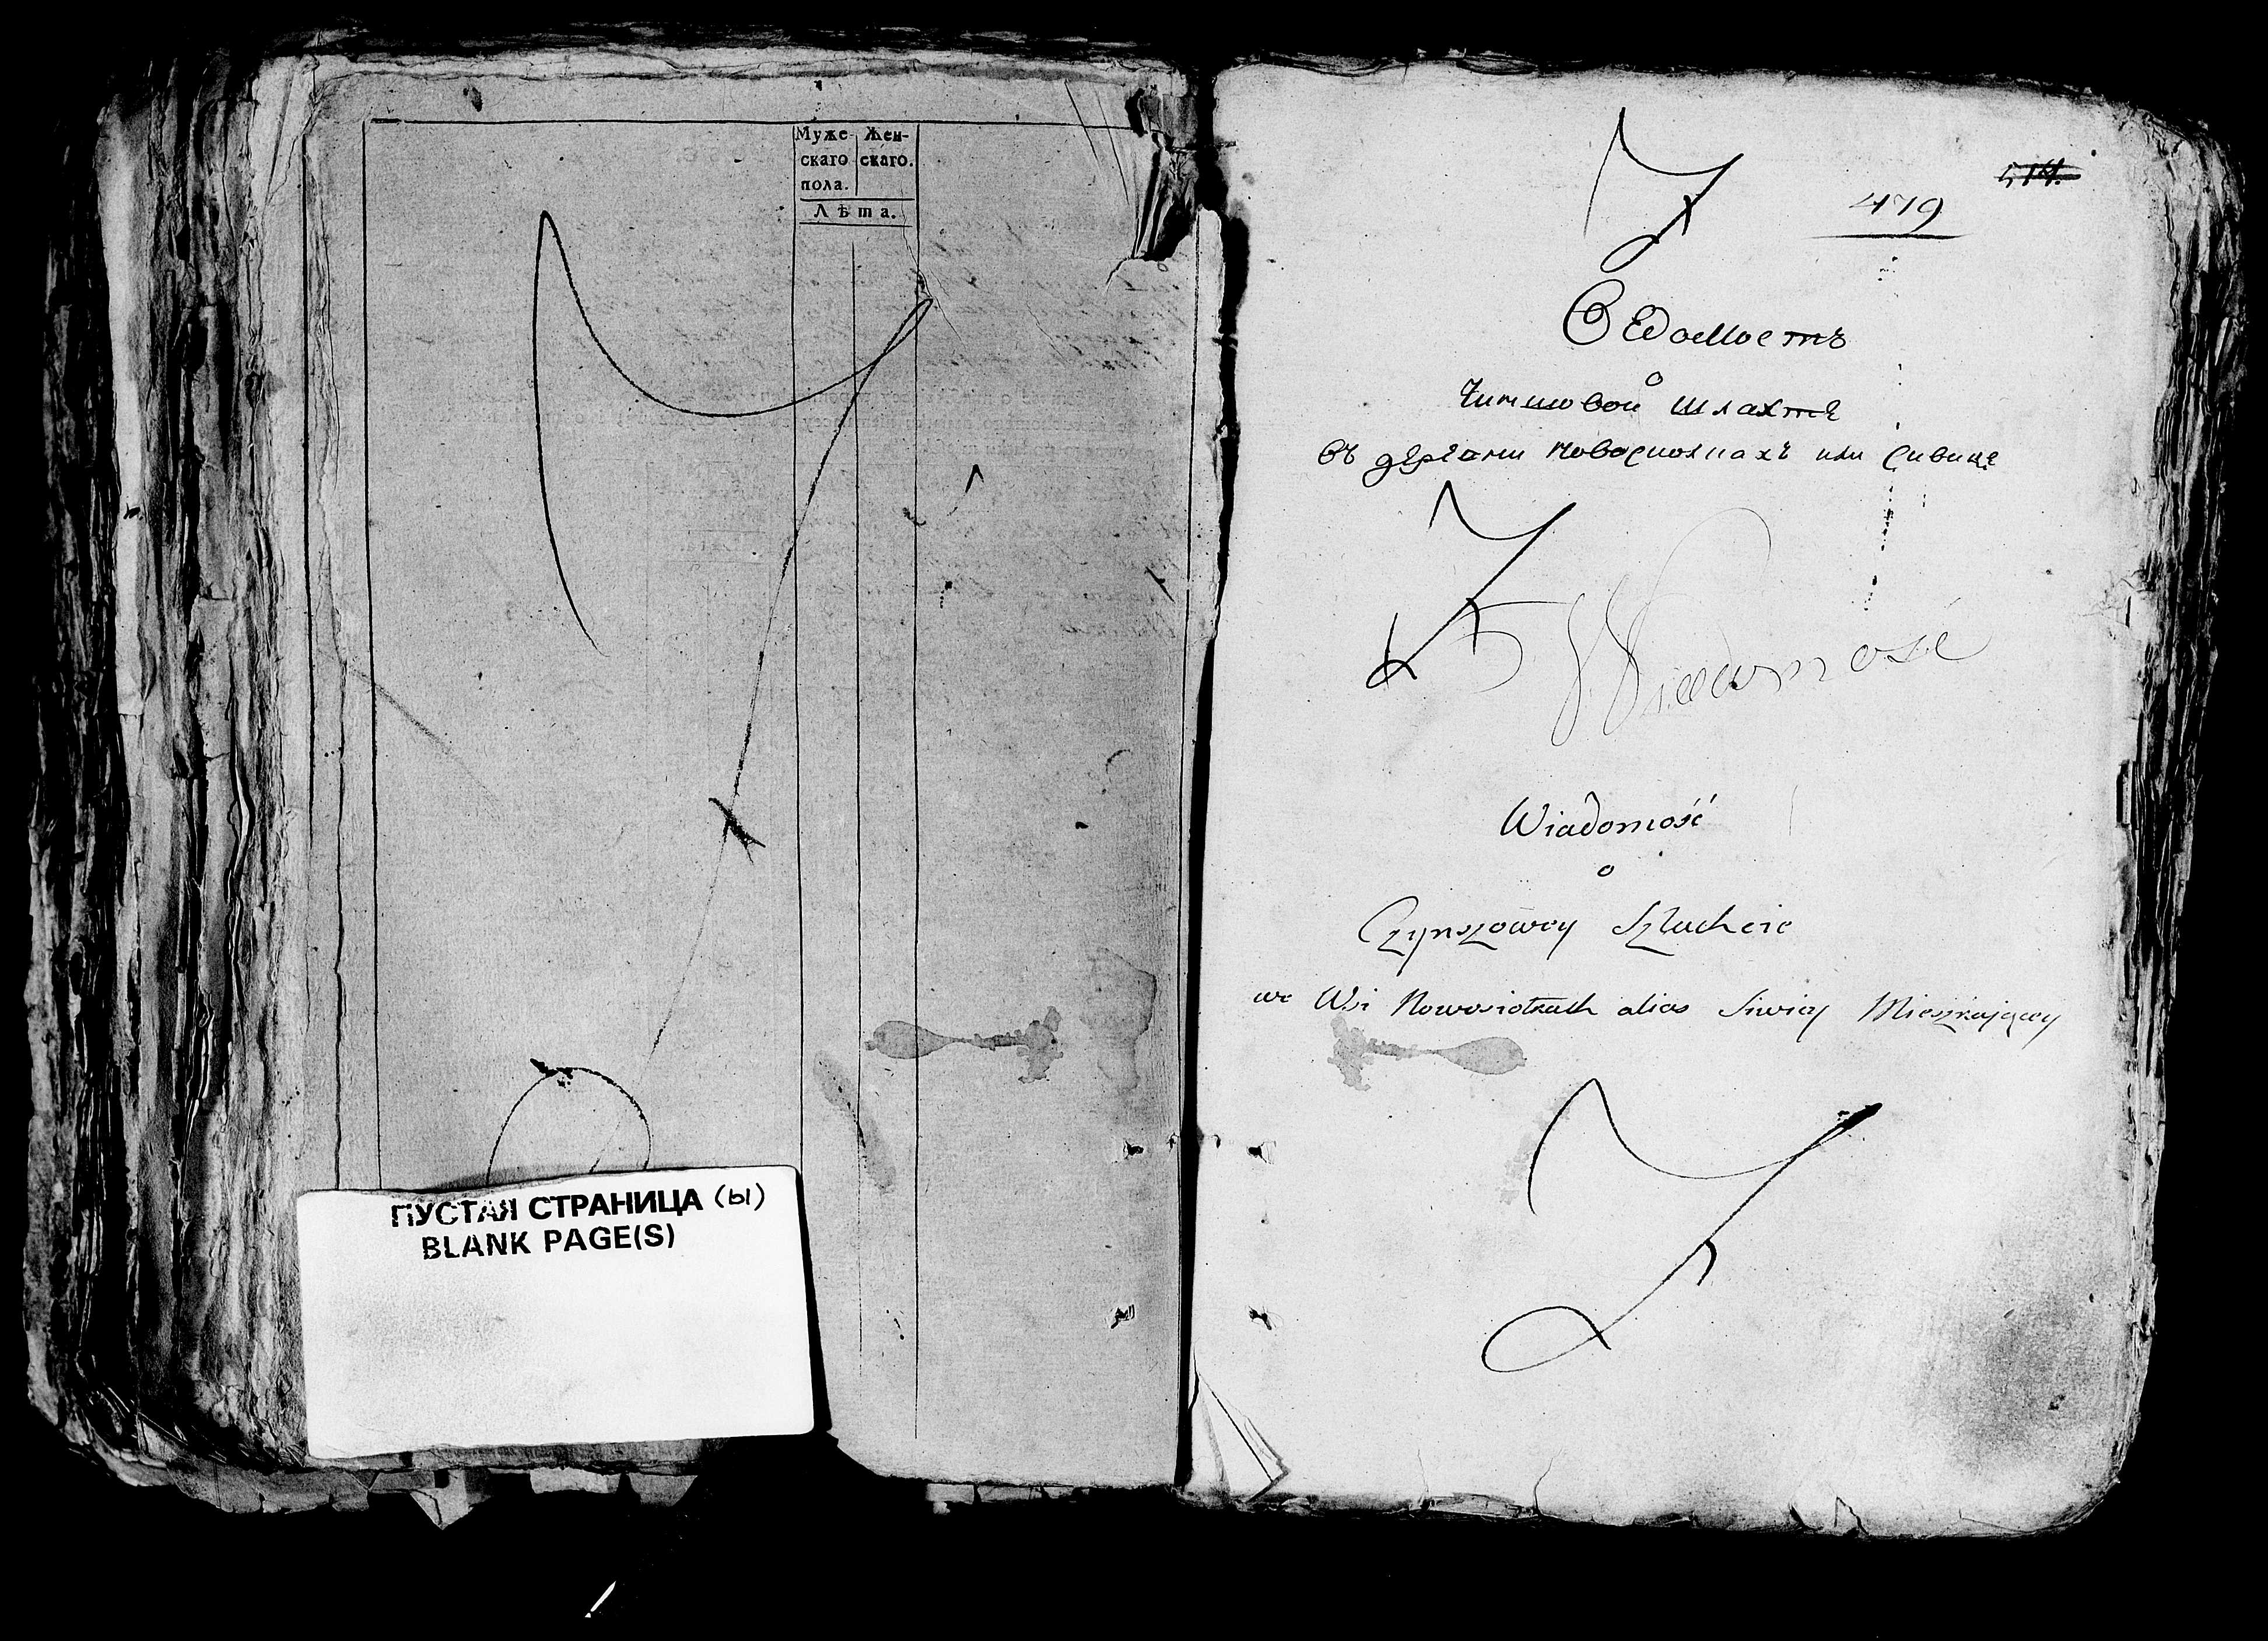 Муже-
скаго
пола.
Жен-
скаго.
Лѣта.
ПУСТАЯ СТРАНИЦА (ы)
BLANK PAGE(S)
479
Ведомость
о
Чиншовой Шлахтѣ
въ деревни Новоселкахъ или Сивице
Wiadomość
Wiadomość
o
Czynszowey Szlachcie
we Wsi Nowosiołkach alias Siwicy Mieszkaiącey